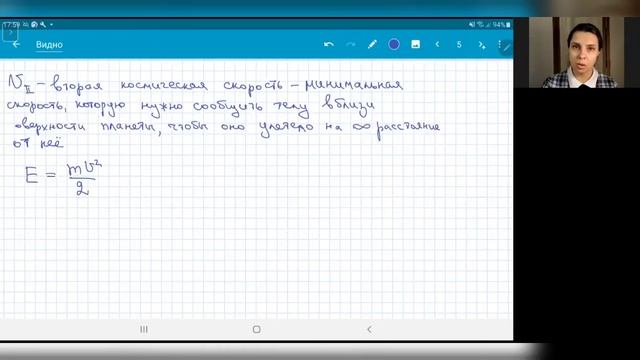 17:59
94%
Видно
5
υ_II – вторая космическая скорость – минимальная
скорость, которую нужно сообщить телу вблизи
оверхности планеты, чтобы оно улетело на ∞ расстояние
от неё
E = mυ²/2